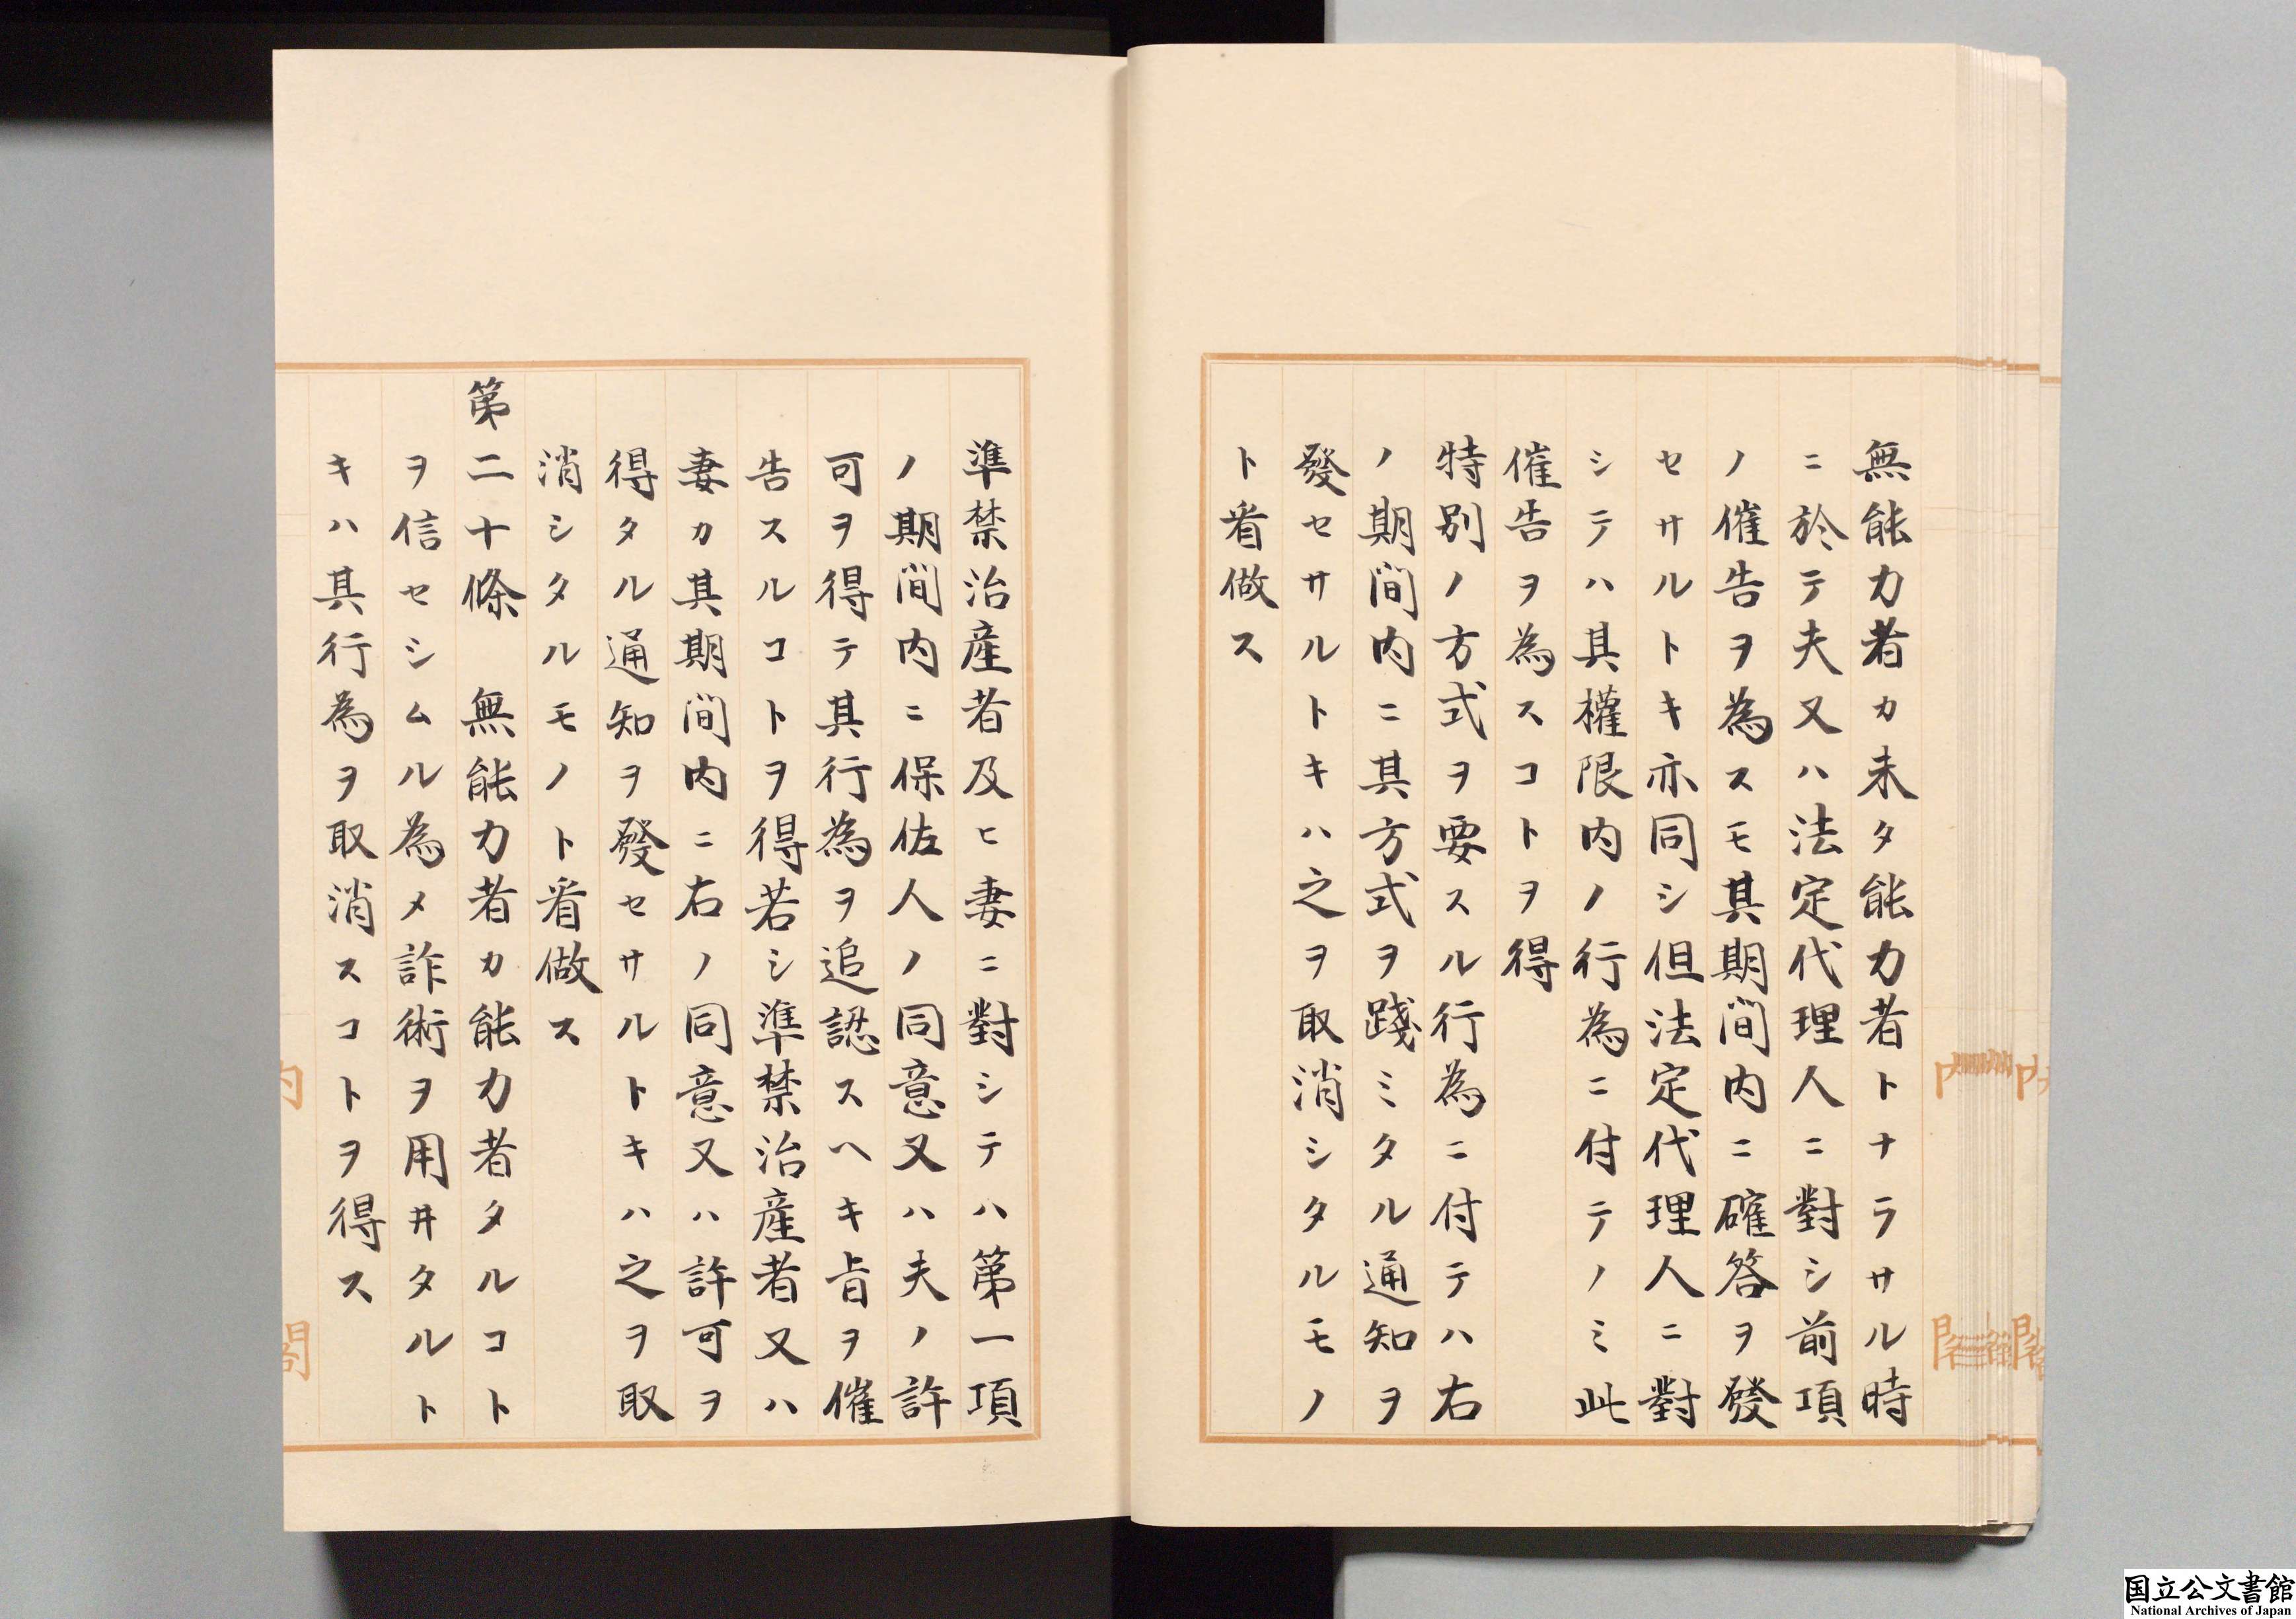 無能力者カ未タ能力者トナラサル時
ニ於テ夫又ハ法定代理人ニ對シ前項
ノ催告ヲ為スモ其期間内ニ確答ヲ發
セサルトキ亦同シ但法定代理人ニ對
シテハ其權限内ノ行為ニ付テノミ此
催告ヲ為スコトヲ得
特別ノ方式ヲ要スル行為ニ付テハ右
ノ期間内ニ其方式ヲ踐ミタル通知ヲ
發セサルトキハ之ヲ取消シタルモノ
ト看做ス
準禁治産者及ヒ妻ニ對シテハ第一項
ノ期間内ニ保佐人ノ同意又ハ夫ノ許
可ヲ得テ其行為ヲ追認スヘキ旨ヲ催
告スルコトヲ得若シ準禁治産者又ハ
妻カ其期間内ニ右ノ同意又ハ許可ヲ
得タル通知ヲ發セサルトキハ之ヲ取
消シタルモノト看做ス
第二十條　無能力者カ能力者タルコト
ヲ信セシムル為メ詐術ヲ用井タルト
キハ其行為ヲ取消スコトヲ得ス
内閣
国立公文書館
National Archives of Japan